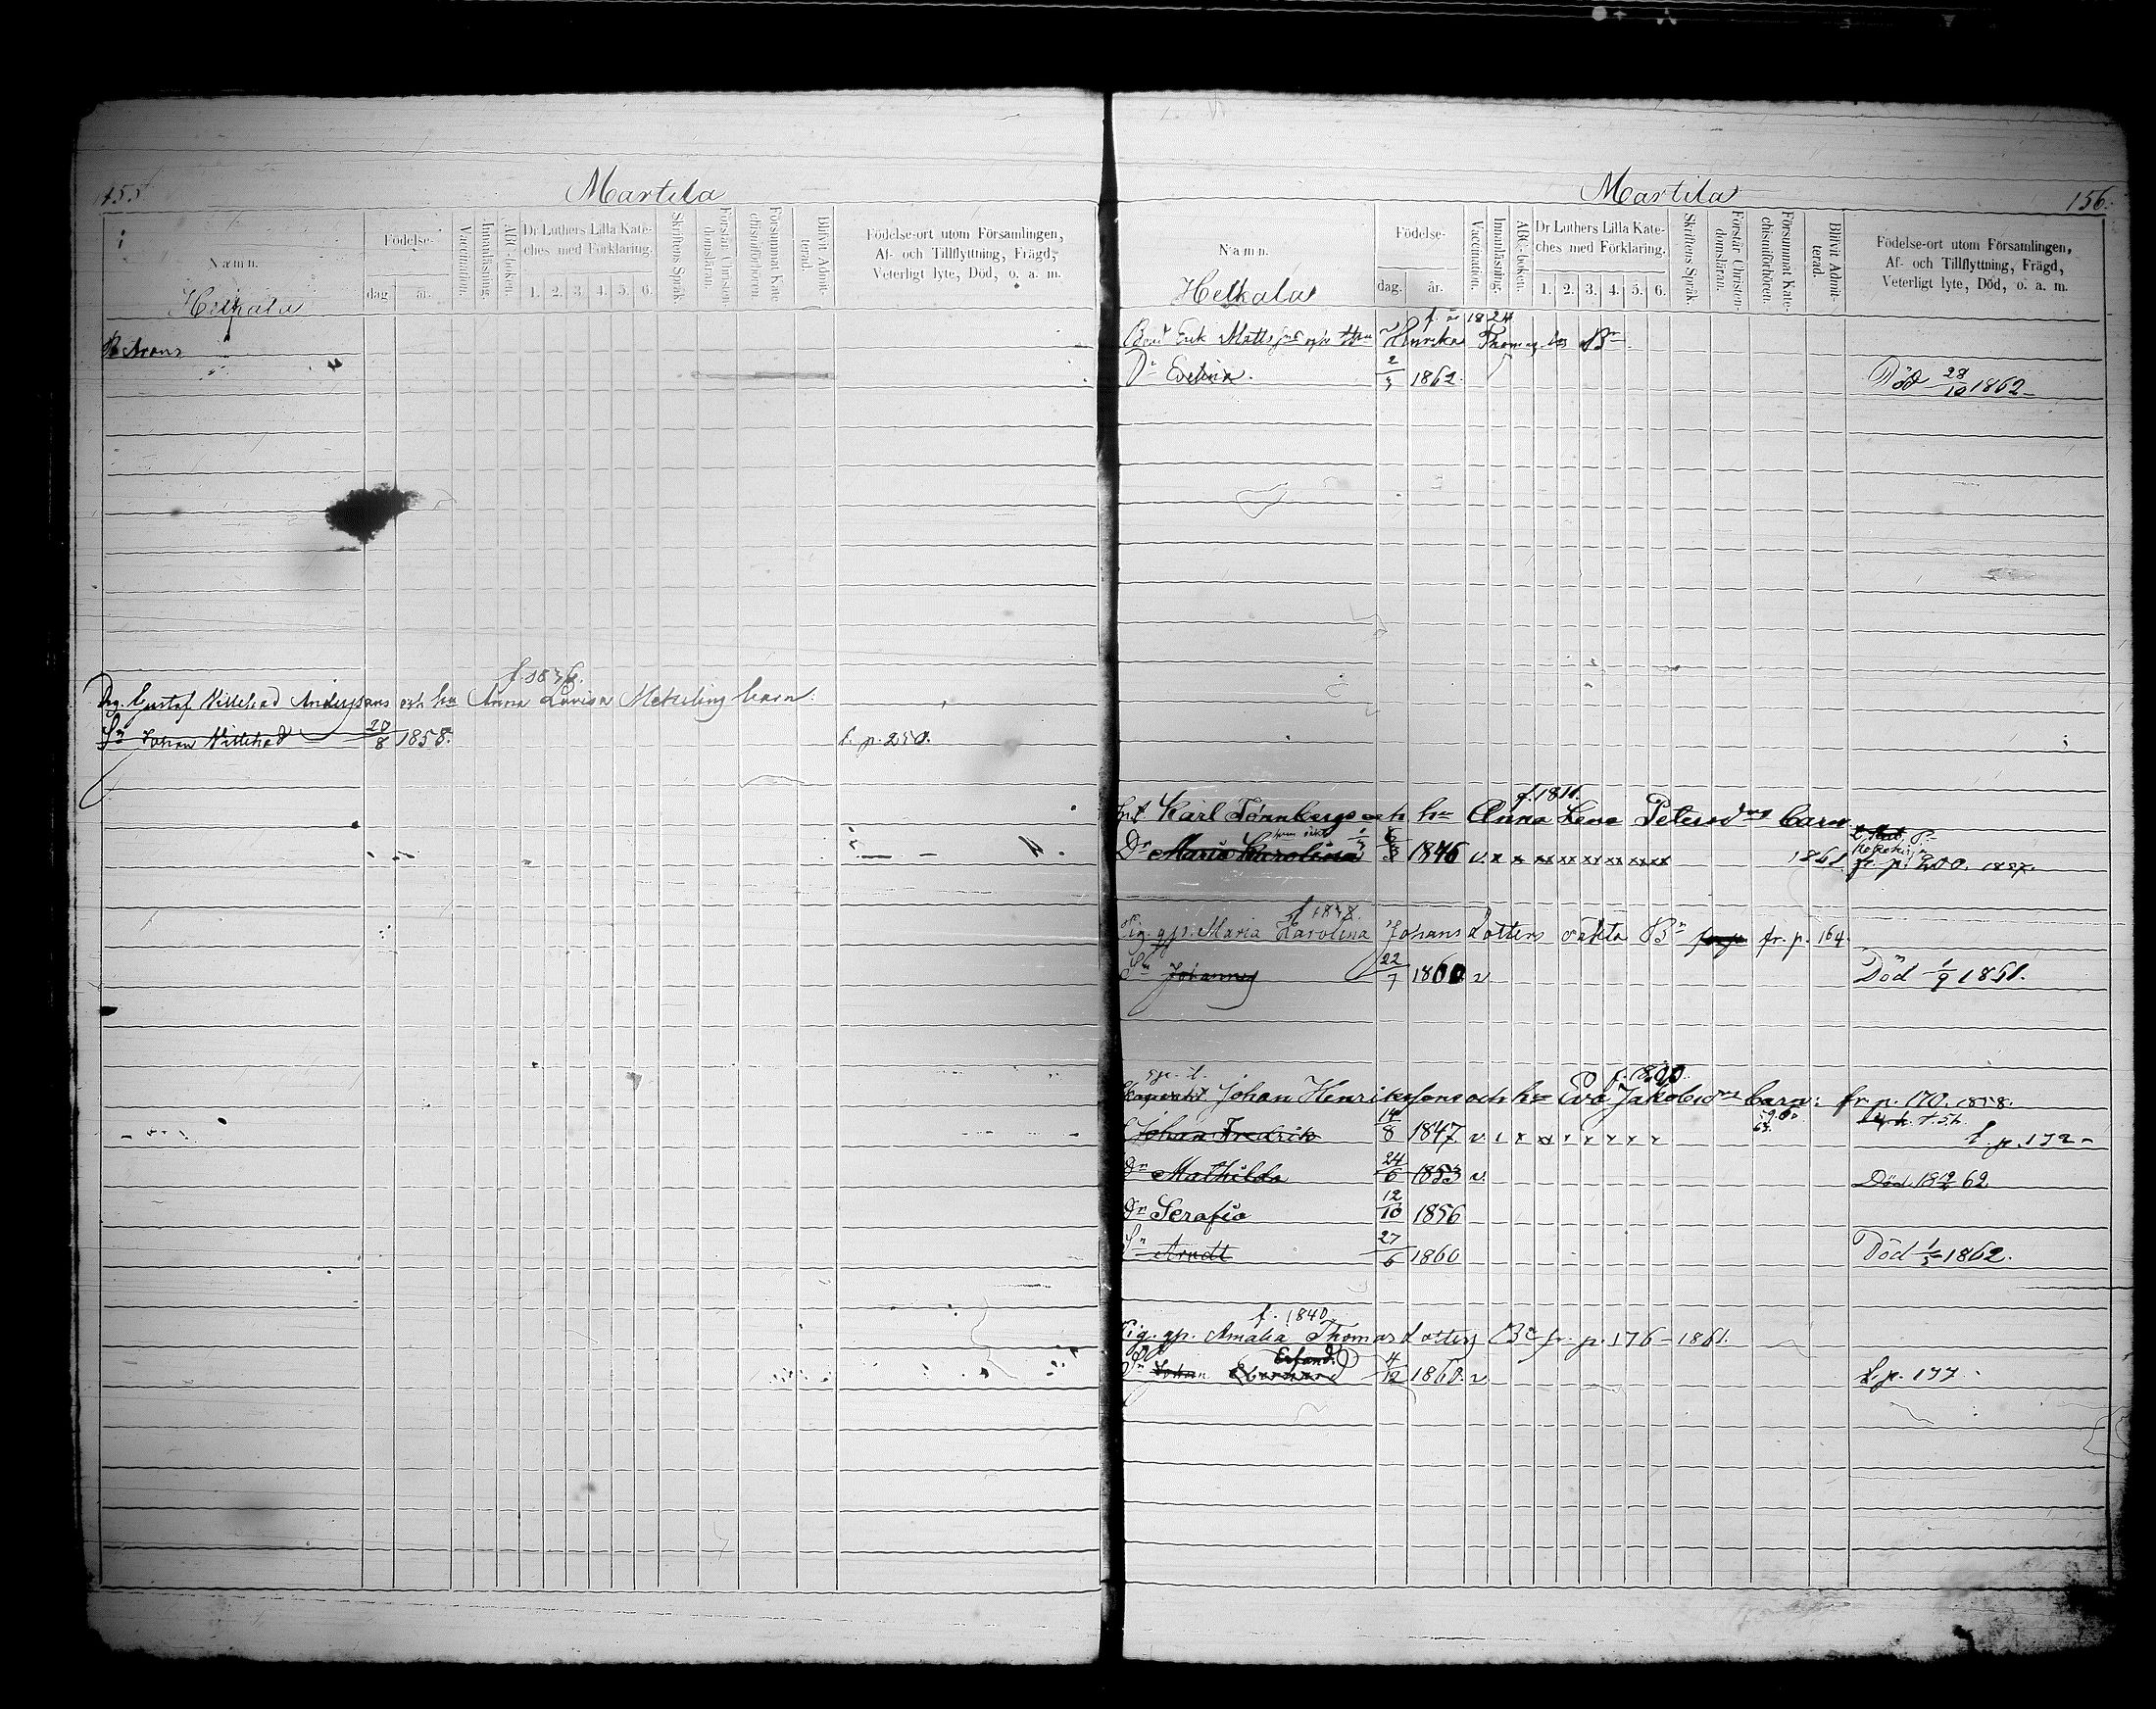 155
Martila
Namn.
Födelse-
dag.
år.
Vaccination.
Innanläsning.
ABC-boken.
Dr Luthers Lilla Kate-
ches med Förklaring.
1. 2. 3. 4. 5. 6.
Skriftens Språk.
Förstår Christen-
domsläran.
Försummat Kate-
chismiförhören.
Blifvit Admit-
terad.
Födelse-ort utom Församlingen,
Af- och Tillflyttning, Frägd,
Veterligt lyte, Död, o. a. m.
Helkala
f. 1836.
Drg. Gustaf Villehad Anderssons och hu Anna Lovisa barn
Sn Johan Villehad 20/8 1858. f. p. 250.
Martila
156.
Namn.
Födelse-
dag.
år.
Vaccination.
Innanläsning.
ABC-boken.
Dr Luthers Lilla Kate-
ches med Förklaring.
1. 2. 3. 4. 5. 6.
Skriftens Språk.
Förstår Christen-
domsläran.
Försummat Kate-
chismiförhören.
Blifvit Admit-
terad.
Födelse-ort utom Församlingen,
Af- och Tillflyttning, Frägd,
Veterligt lyte, Död, o. a. m.
Helkala
1824
Erik Matts Bn
Dr Evelina. 1862. Död 28/10 1862
f. 1811.
Karl Tönnbergs och hu Anna Lena Petersdrs barn
Dr Maria Karolina 1846 v x x xx xx xx xx xx xx 1861 fr. p. 200. 1857.
f. 1838.
Pig. gp. Maria Karolina Johansdotters oäkta Bn fr. p. 164.
Sn Johannes 22/7 1860 v Död 1/9 1861.
f. 1800.
Johan Henrikssons och hu Eva Jakobsdrs barn: fr. p. 170. 1858.
Johan Fredrik 14/8 1847 v f. p. 172
Dr Mathilda 24/6 1853 v. Död 62
Dr Serafia 12/10 1856
Sn Arndt 27/6 1860 Död 1862.
f. 1840.
Pig. gp. Amalia Thomasdotters Bn fr. p. 176 - 1861.
Erland
Sn Johan 4/12 1860. v f. p. 177